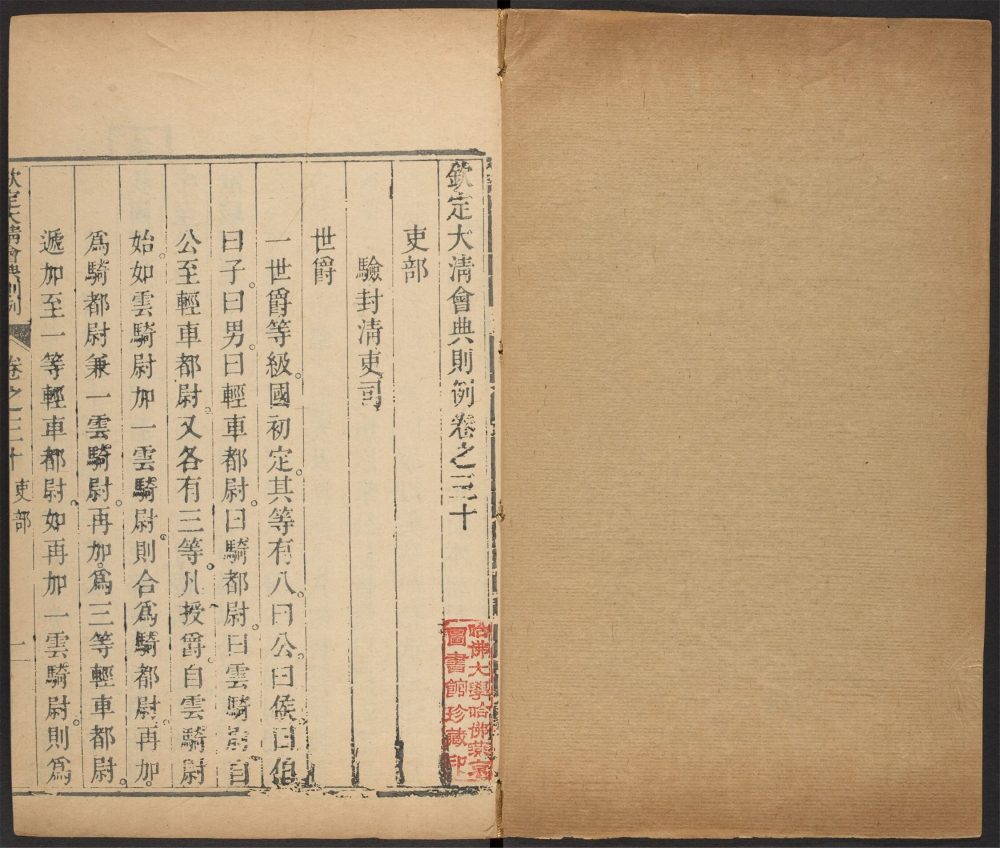 欽定大清會典則例卷之三十
吏部
驗封清吏司
世爵
一世爵等級。國初定。其等有八。曰公。曰侯。曰伯。
曰子。曰男。曰輕車都尉。曰騎都尉。曰雲騎尉。自
公至輕車都尉。又各有三等。凡授爵自雲騎尉
始。如雲騎尉加一雲騎尉。則合爲騎都尉。再加。
爲騎都尉兼一雲騎尉。再加。爲三等輕車都尉。
遞加至一等輕車都尉。如再加一雲騎尉。則爲
欽定大清會典則例
卷之三十
吏部
一
哈佛大學哈佛燕京
圖書館珍藏印